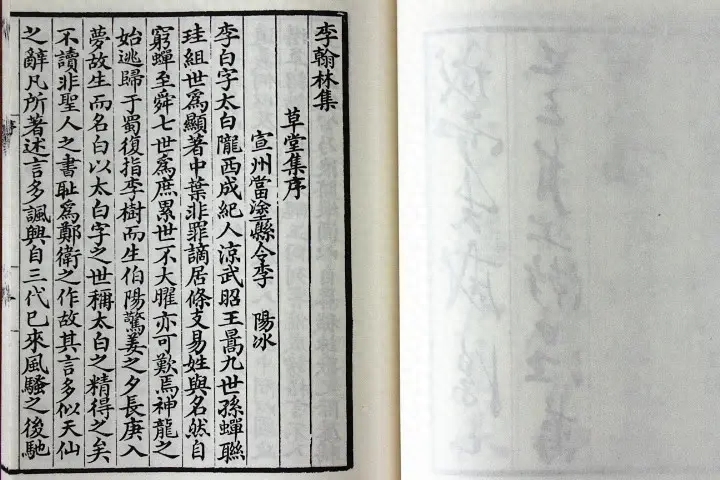 李翰林集
草堂集序
宣州當塗縣令李 陽冰
李白字太白隴西成紀人涼武昭王暠九世孫蟬聯
珪組世爲顯著中葉非罪謫居條支易姓與名然自
窮蟬至舜七世爲庶累世不大曜亦可歎焉神龍之
始逃歸于蜀復指李樹而生伯陽驚姜之夕長庚入
夢故生而名白以太白字之世稱太白之精得之矣
不讀非聖人之書恥爲鄭衛之作故其言多似天仙
之辭凡所著述言多諷興自三代已來風騷之後馳